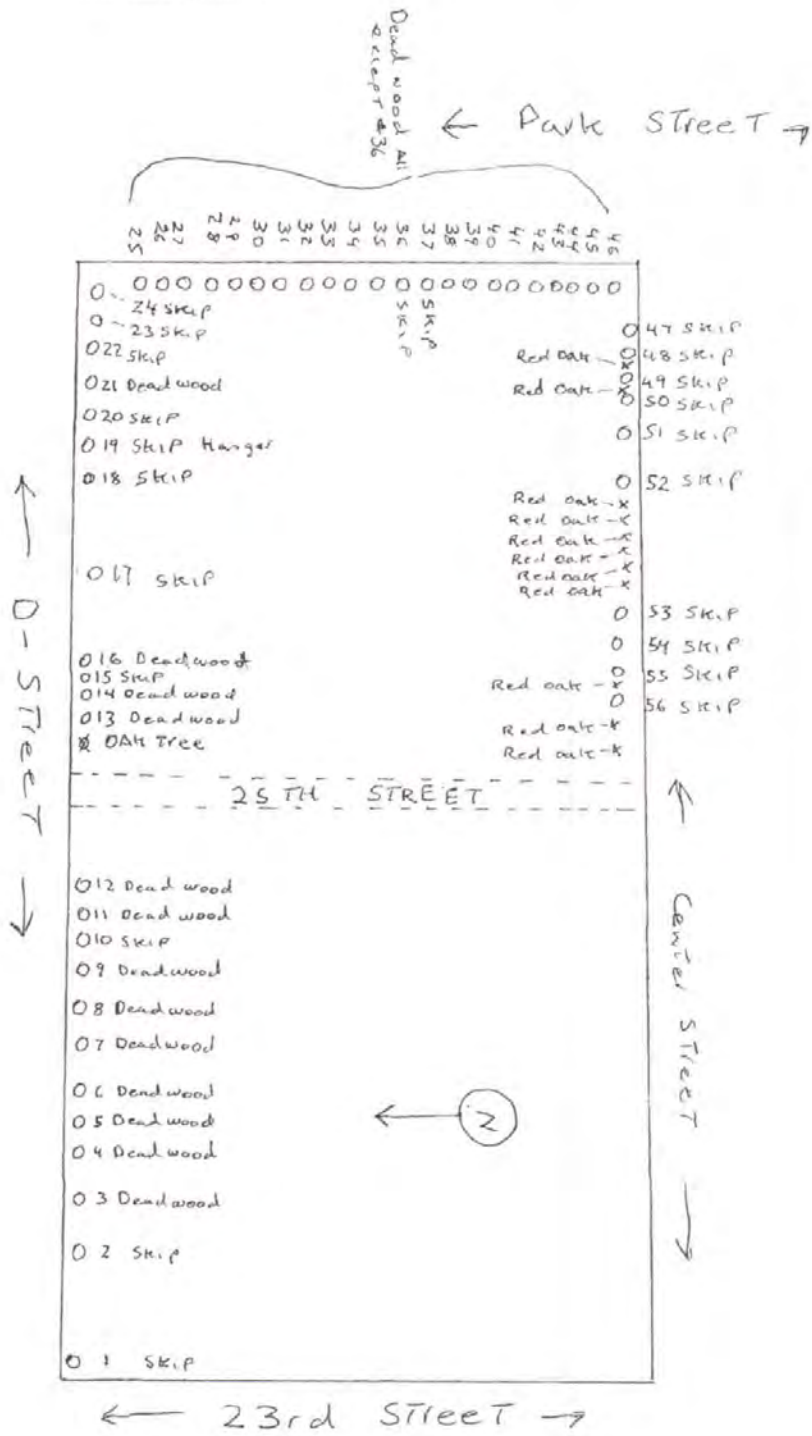 Dead wood All
except #36
← Park Street →
25 26 27 28 29 30 31 32 33 34 35 36 37 38 39 40 41 42 43 44 45 46
Skip Skip
24 Skip
23 Skip
22 Skip
21 Deadwood
20 Skip
19 Skip Hanger
18 Skip
17 Skip
16 Deadwood
15 Skip
14 Deadwood
13 Deadwood
OAK Tree
47 Skip
Red Oak 48 Skip
Red Oak 49 Skip
50 Skip
51 Skip
52 Skip
Red Oak
Red Oak
Red Oak
Red Oak
Red oak
Red oak
53 Skip
54 Skip
55 Skip
Red oak
56 Skip
Red oak
Red oak
← D-Street →
25TH STREET
12 Dead wood
11 Dead wood
10 Skip
9 Deadwood
8 Deadwood
7 Deadwood
6 Deadwood
5 Deadwood
4 Deadwood
3 Deadwood
2 Skip
1 Skip
← Center Street →
← 23rd Street →